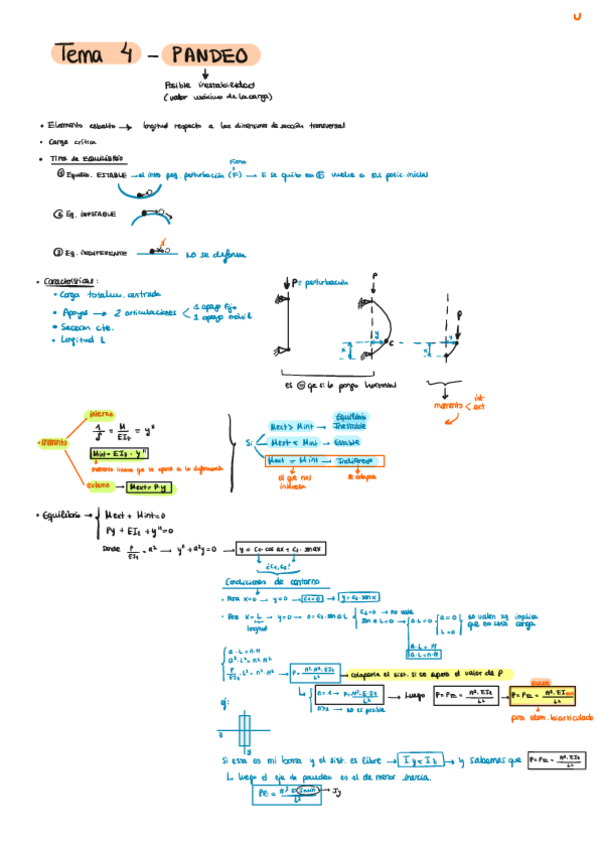 U
Tema 4 - PANDEO
Posible inestabilidad
(valor máximo de la carga)
• Elemento esbelto → longitud respecto a las dimensiones de sección transversal
• Carga crítica
• TIPOS DE EQUILIBRIO
① Equilib. ESTABLE → (F) → si se quita esa F vuelve a su posic. inicial
② Eq. INESTABLE
③ Eq. INDIFERENTE NO se deforma
• Características:
• Carga totalm. centrada
• Apoyos → 2 articulaciones < 1 apoyo fijo
1 apoyo móvil
• Sección cte.
• Longitud L
P = perturbación
P
P
y
c
x
y
x
es que si lo pongo horizontal
momento < int
ext
• momento
interno
1/ρ = M/EIz = y''
Mint = EIz · y''
momento interno que se opone a la deformación
externo → Mext = P·y
Si
Mext > Mint → Equilibrio Inestable
Mext < Mint → Estable
Mext = Mint → Indiferente
el que nos interesa
• Equilibrio → Mext + Mint = 0
Py + EIz + y'' = 0
Donde P/EIz = a² → y'' + a²y = 0 → y = C1· cos ax + C2· sen ax
¿C1, C2?
Condiciones de contorno
• Para x=0 → y=0 → C1=0 → y = C2· sen x
• Para x = L → y=0 → 0 = C2· sen a L
longitud
C2=0 → no vale
sen a L = 0 → a·L = 0
a=0
L=0
no valen xq implica que no está carga
a·L = π
a·L = n·π
a·L = n·π
a²·L² = n²·π²
P/EIz · L² = n²·π² → P = n²·π²·EIz/L² → colapsaría el sist. si se supera el valor de P
n=1 → P = π²·EIz/L² → Luego P = PE = π²·EIz/L² → P = PE = π²·EImin/L²
n>1 → no es posible
para elem. biarticulado
ej:
z
y
Si esta es mi barra y el sist. es libre → Iy < Iz → y sabemos que P = PE = π²·EIz/L²
L luego el eje de pandeo es el de menor inercia.
PE = π²·E·Imin/L² → Iy